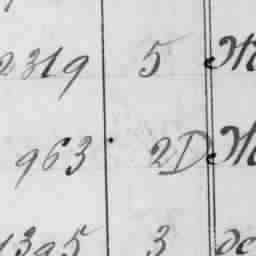 2319 5
963 2D
1395 3 de